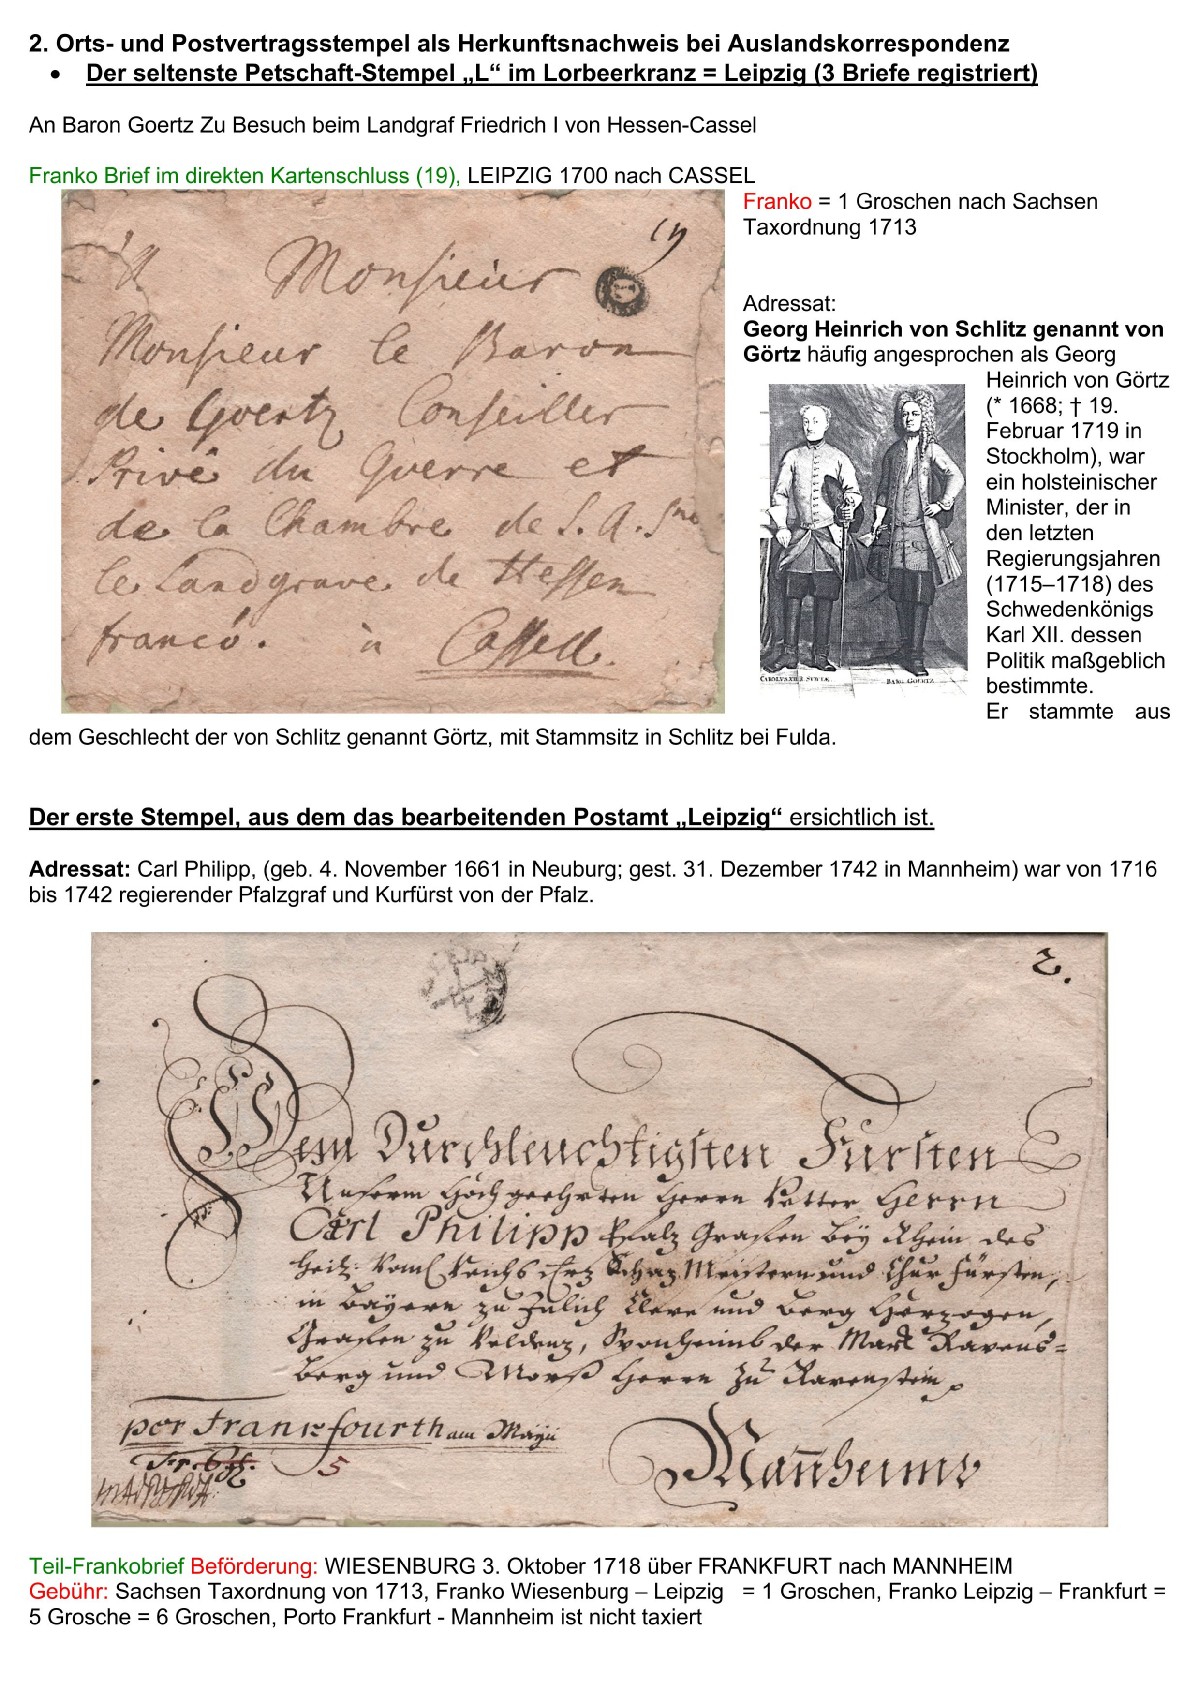 2. Orts- und Postvertragsstempel als Herkunftsnachweis bei Auslandskorrespondenz
• Der seltenste Petschaft-Stempel „L“ im Lorbeerkranz = Leipzig (3 Briefe registriert)
An Baron Goertz Zu Besuch beim Landgraf Friedrich I von Hessen-Cassel
Franko Brief im direkten Kartenschluss (19), LEIPZIG 1700 nach CASSEL
Franko = 1 Groschen nach Sachsen
Taxordnung 1713
Monsieur
Monsieur le Baron
de Goertz Conseiller
Privé du Guerre et
de la Chambre de S. A. Sme
le Landgrave de Hessen
franco. à Cassell.
Adressat:
Georg Heinrich von Schlitz genannt von
Görtz häufig angesprochen als Georg
Heinrich von Görtz
(* 1668; † 19.
Februar 1719 in
Stockholm), war
ein holsteinischer
Minister, der in
den letzten
Regierungsjahren
(1715–1718) des
Schwedenkönigs
Karl XII. dessen
Politik maßgeblich
bestimmte.
Er stammte aus
BARO GOERTZ
dem Geschlecht der von Schlitz genannt Görtz, mit Stammsitz in Schlitz bei Fulda.
Der erste Stempel, aus dem das bearbeitenden Postamt „Leipzig“ ersichtlich ist.
Adressat: Carl Philipp, (geb. 4. November 1661 in Neuburg; gest. 31. Dezember 1742 in Mannheim) war von 1716
bis 1742 regierender Pfalzgraf und Kurfürst von der Pfalz.
2.
Dem Durchleuchtigsten Fürsten
Unserm Hochgeehrten Herrn Vetter Herrn
Carl Philipp Pfalz Grafen bey Rhein des
Heil: Röm: Reichs Erz Schaz Meistern und Chur Fürsten,
in Bayern zu Jülich Cleve und Berg Herzogen,
Grafen zu Veldenz, Sponheimb der Mark Ravens=
berg und Mörß Herrn zu Ravenstein
per Franckfourth am Mayn
5
Mannheim
Teil-Frankobrief Beförderung: WIESENBURG 3. Oktober 1718 über FRANKFURT nach MANNHEIM
Gebühr: Sachsen Taxordnung von 1713, Franko Wiesenburg – Leipzig = 1 Groschen, Franko Leipzig – Frankfurt =
5 Grosche = 6 Groschen, Porto Frankfurt - Mannheim ist nicht taxiert